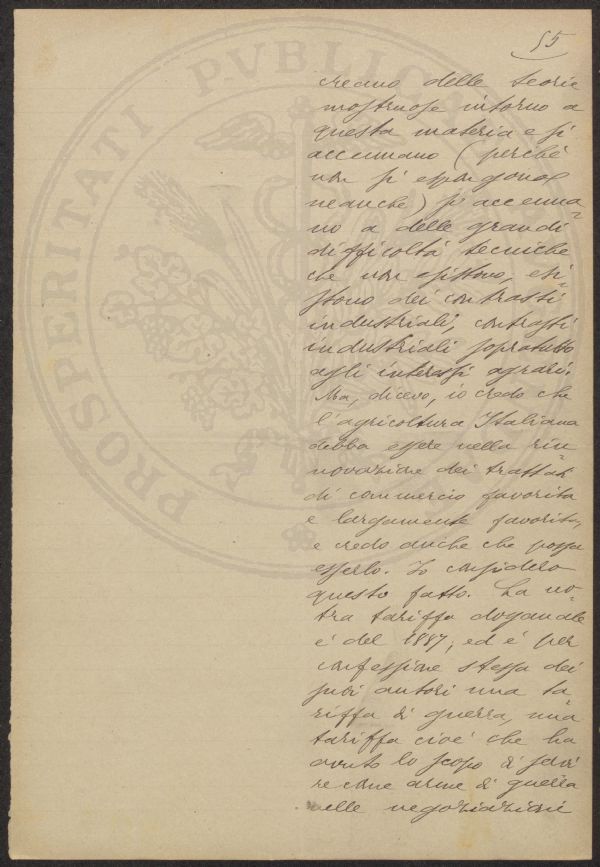 55
PROSPERITATI PVBLICAE
creano delle teorie
mostruose intorno a
questa materia e si
accennano (perchè
non si espongono
neanche) si accenna-
no a delle grandi
difficoltà tecniche
che non esistono, esi-
stono dei contrasti
industriali, contrasti
industriali sopratutto
agli interessi agrari.
Ma, dicevo, io credo che
l'agricoltura Italiana
debba essere nella rin-
novazione dei trattati
di commercio favorita
e largamente favorita,
e credo anche che possa
esserlo. Io considero
questo fatto. La no-
tra tariffa doganale
è del 1887, ed è per
confessione stessa dei
suoi autori una ta-
riffa di guerra, una
tariffa cioè che ha
avuto lo scopo di servi
re come arme di guerra
nelle negoziazioni